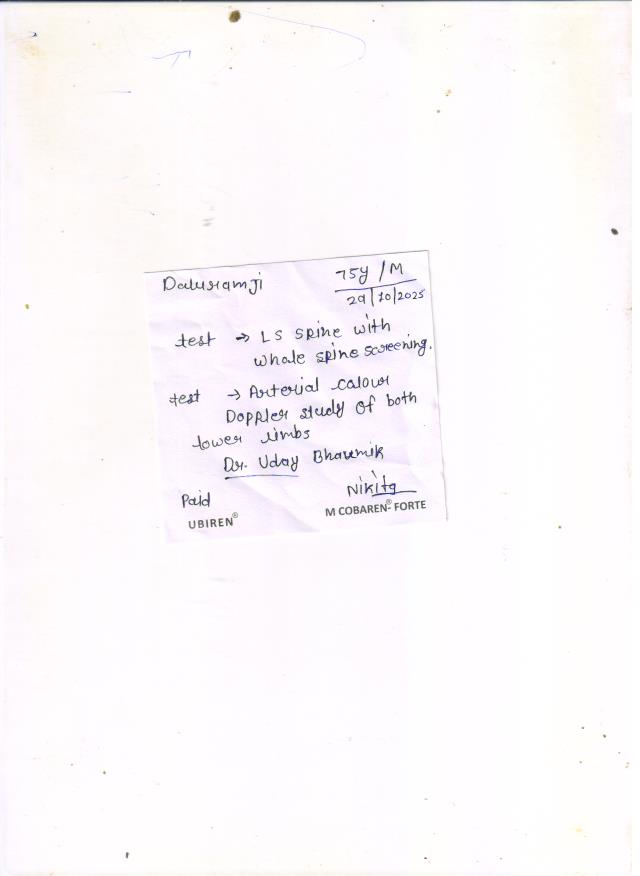 Daluramji 75y/M
29/10/2025
test → LS spine with
whole spine screening.
test → Arterial colour
Doppler study of both
lower limbs
Dr. Uday Bhaumik
Paid Nikita
UBIREN® M COBAREN®-FORTE